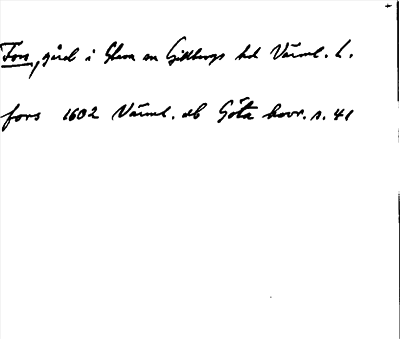 Fors, gård i Glava sn Gillbergs hd Värml. l.
fors 1602 Värml. db Göta hovr. s. 41